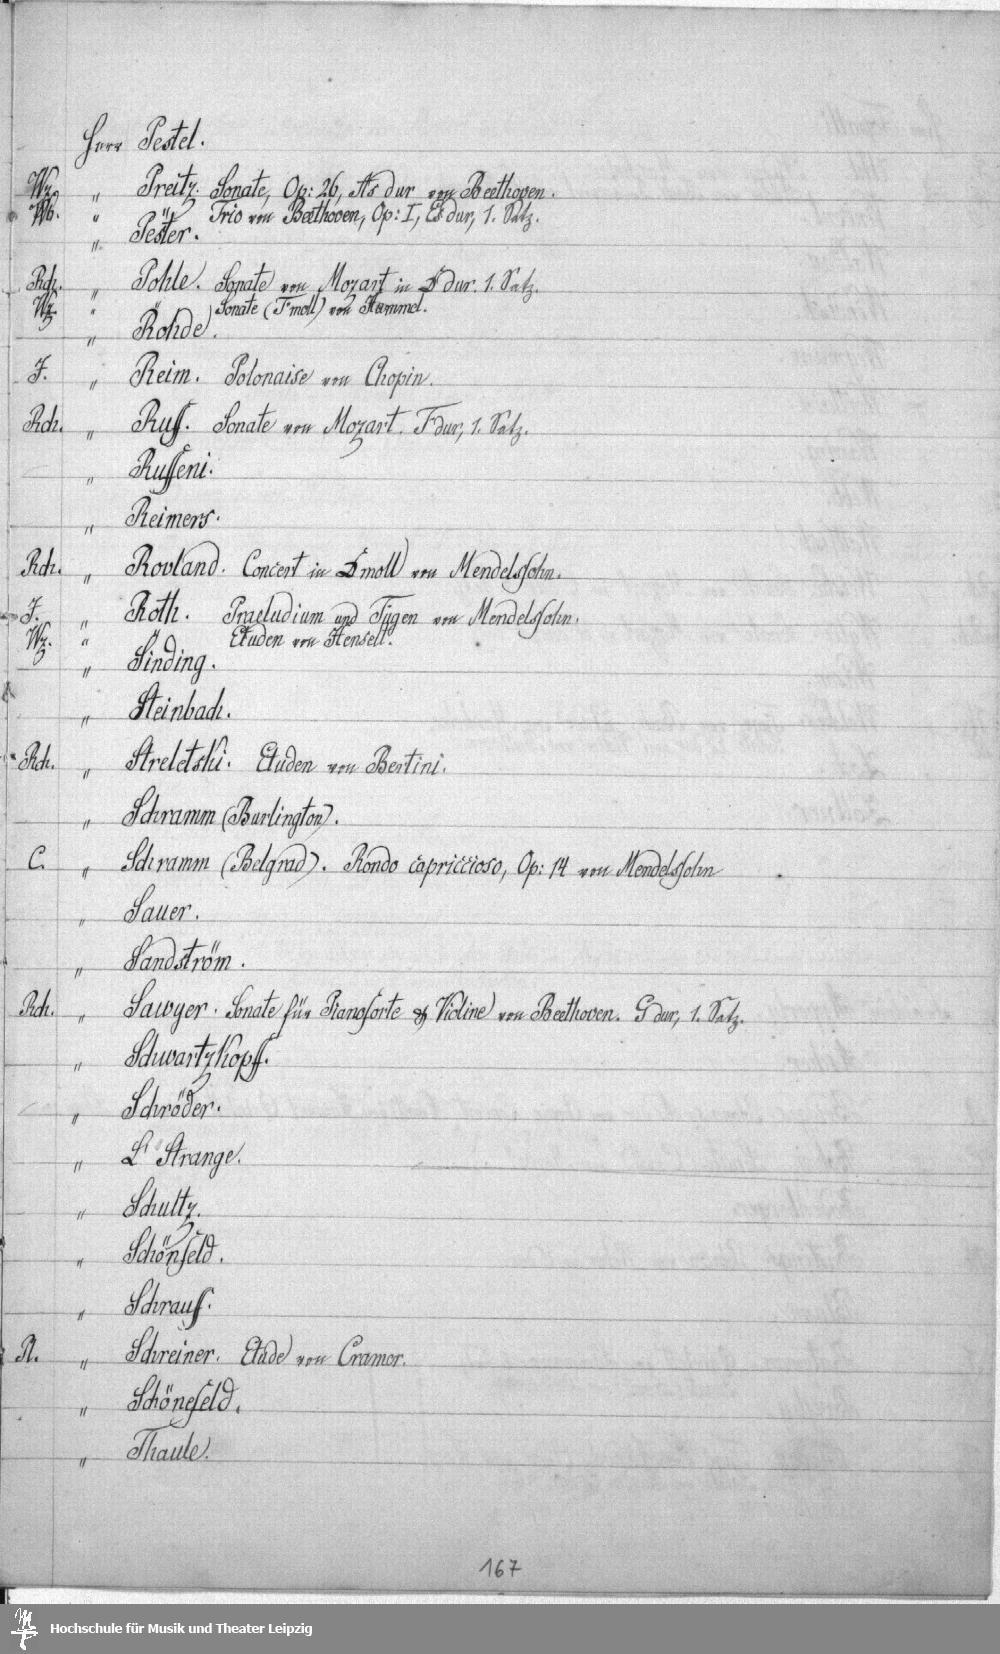 Herr Pestel.
Wz. „ Preitz. Sonate, Op: 26, As dur von Beethoven.
Wb. „ Trio von Beethoven, Op: I, Es dur, 1. Satz.
„ Pester.
Rch. „ Pohle. Sonate von Mozart in D dur. 1. Satz.
Wz. „ Sonate (F moll) von Hummel.
„ Rohde.
F. „ Reim. Polonaise von Chopin.
Rch. „ Ruff. Sonate von Mozart. F dur, 1. Satz.
„ Ruffeni.
„ Reimers.
Rch. „ Rovland. Concert in D moll von Mendelssohn.
F. „ Roth. Praeludium und Fugen von Mendelssohn.
Wz. „ Etuden von Henselt.
„ Sinding.
„ Steinbach.
Rch. „ Streletski. Etuden von Bertini.
„ Schramm (Burlington).
C. „ Schramm (Belgrad). Rondo capriccioso, Op: 14 von Mendelssohn
„ Sauer.
„ Sandström.
Rch. „ Sawyer. Sonate für Pianoforte & Violine von Beethoven. G dur, 1. Satz.
„ Schwartzkopff.
„ Schröder.
„ L'Strange.
„ Schultz.
„ Schönfeld.
„ Schrauff.
„ Schreiner. Etude von Cramer.
„ Schönefeld.
„ Thaule.
167
Hochschule für Musik und Theater Leipzig